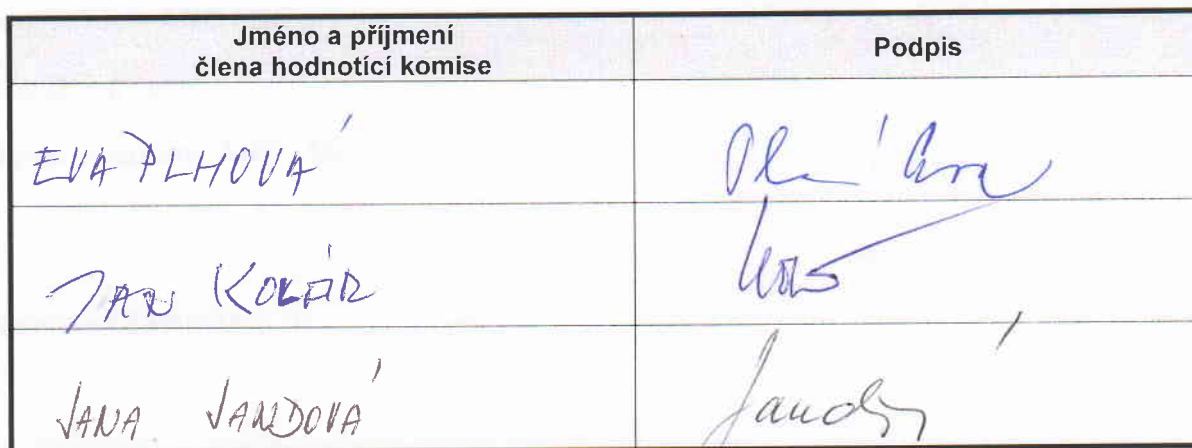 Jméno a příjmení
člena hodnotící komise
Podpis
EVA PLHOVÁ
JAN KOLÁR
JANA JANDOVÁ